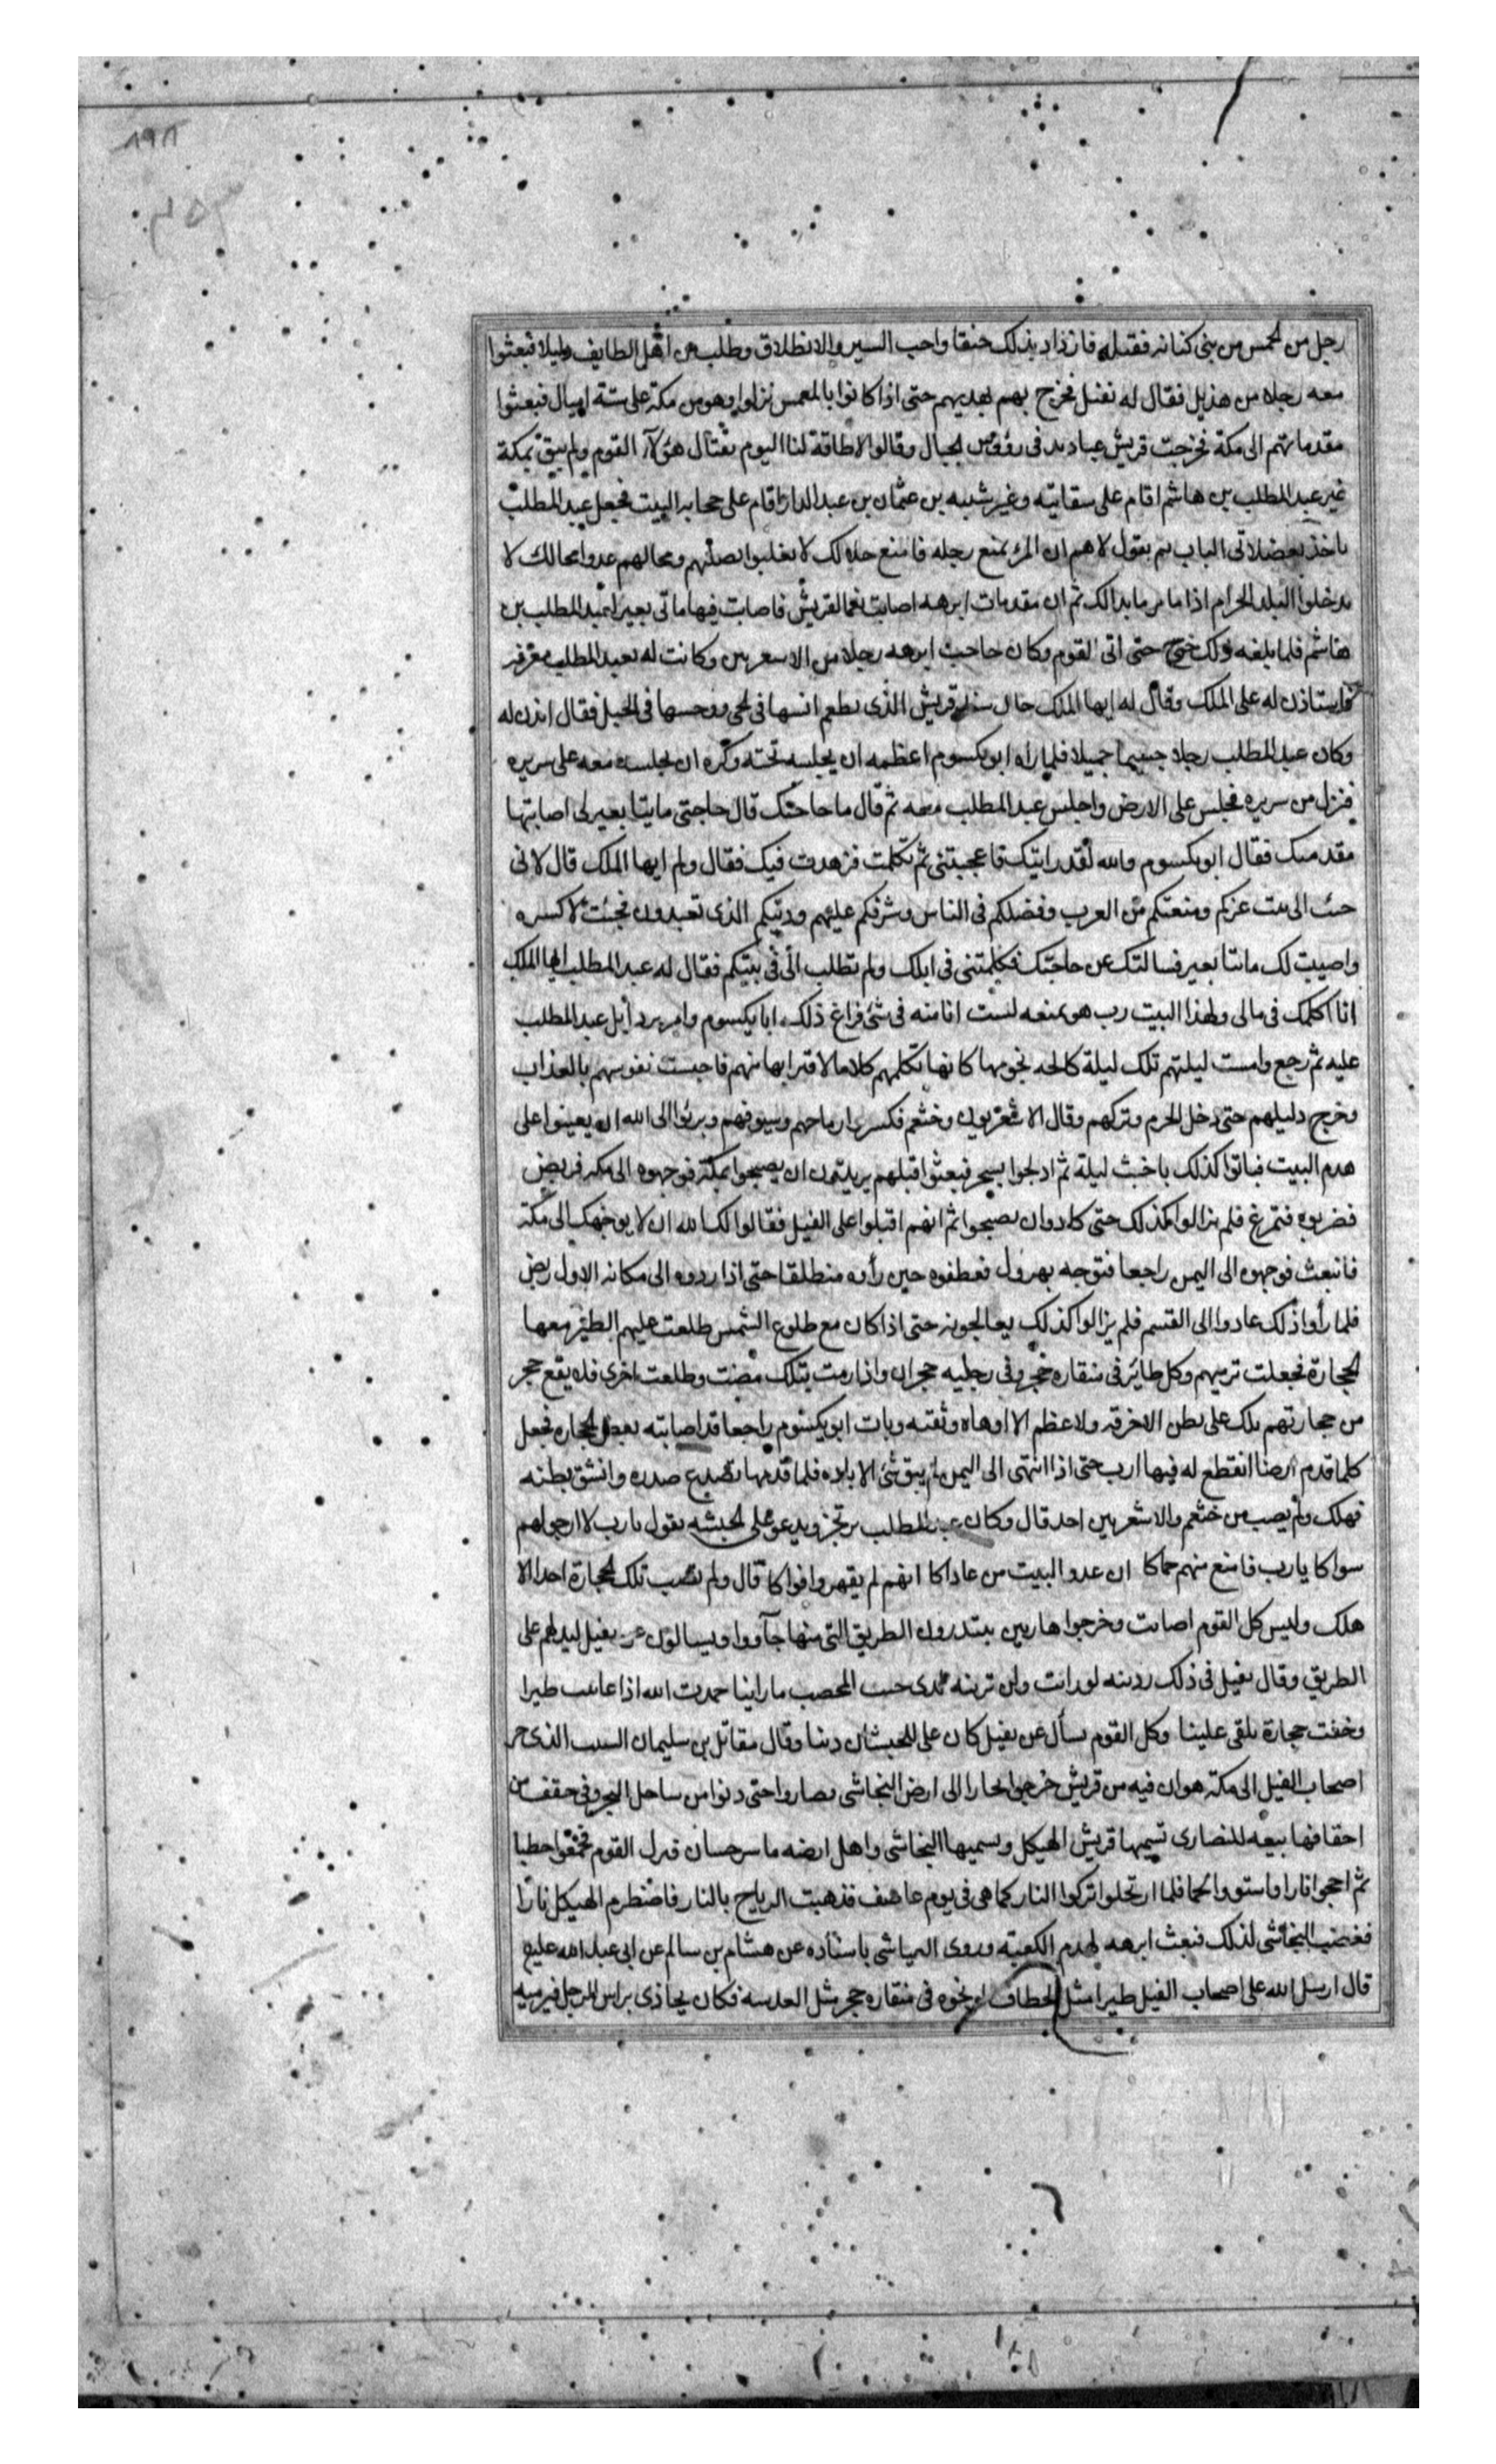 رجل من الحمس من بنى كنانه فقتله فازداد بذلك حنقا واحب السير والانطلاق وطلب من اهل الطايف دليلا فبعثوا
معه رجلا من هذيل فقال له نفيل فخرج بهم يهديهم حتى اذا كانوا بالمغمس نزلوا وهو من مكة على ستة اميال فبعثوا
مقدماتهم الى مكة فخرجت قريش عباديد فى رؤوس الجبال وقالوا لاطاقة لنا اليوم بقتال هؤلآء القوم ولم يبق بمكة
غير عبد المطلب بن هاشم اقام على سقايته وغير شيبه بن عثمان بن عبد الدار اقام على حجابه البيت فجعل عبد المطلب
ياخذ بعضادتى الباب ثم يقول لاهم ان المرء يمنع رحله فامنع حلالك لا يغلبوا بصليبهم ومحالهم عدوا محالك لا
يدخلوا البلد الحرام اذا ما مر ما بدا لك ثم ان مقدمات ابرهه اصابت نعما لقريش فاصابت فيها ماتى بعير لعبد المطلب بن
هاشم فلما بلغه ذلك خرج حتى اتى القوم وكان حاجب ابرهه رجلا من الاسعريين وكانت له بعبد المطلب معرفه
فاستاذن له على الملك وقال له ايها الملك جاك سيد قريش الذى يطعم انسها فى الحى ووحسها فى الجبل فقال ائذن له
وكان عبد المطلب رجلا جسيما جميلا فلما راه ابو يكسوم اعظمه ان يجلسه تحته وكره ان يجلسه معه على سريره
فنزل من سريره فجلس على الارض واجلس عبد المطلب معه ثم قال ما حاجتك قال حاجتى مايتا بعير لى اصابتها
مقدمتك فقال ابو يكسوم والله لقد رايتك فاعجبتنى ثم تكلمت فزهدت فيك فقال ولم ايها الملك قال لانى
جئت الى بيت عزكم ومنعتكم من العرب وفضلكم فى الناس وشرفكم عليهم ودينكم الذى تعبدون فجئت لاكسره
واصيبت لك مائتا بعير فسالتك عن حاجتك فكلمتنى فى ابلك ولم تطلب الى فى بيتكم فقال له عبد المطلب ايها الملك
انا اكلمك فى مالى ولهذا البيت رب هو يمنعه لست انا منه فى شئ فراغ ذلك ابا يكسوم وامر برد ابل عبد المطلب
عليه ثم رجع وامست ليلتهم تلك ليلة كالحه نجومها كانها تكلمهم كلاما لاقترابها منهم فاحست نفوسهم بالعذاب
وخرج دليلهم حتى دخل الحرم وتركهم وقال الاشعريون وخثعم فكسروا رماحهم وسيوفهم وبرئوا الى الله ان يعينوا على
هدم البيت فباتوا كذلك باخبث ليلة ثم ادلجوا بسحر فبعثوا فيلهم يريدون ان يصبحوا بمكة فوجهوه الى مكه فربض
فضربوه فتمرغ فلم يزالوا كذلك حتى كادوا ان يصبحوا ثم انهم اقبلوا على الفيل فقالوا لك الله ان لا يوجهك الى مكة
فانبعث فوجهوه الى اليمن راجعا فتوجه يهرول فعطفوه حين رأوه منطلقا حتى اذا ردوه الى مكانه الاول ربض
فلما رأوا ذلك عادوا الى القسم فلم يزالوا كذلك يعالجونه حتى اذا كان مع طلوع الشمس طلعت عليهم الطير معها
الحجارة فجعلت ترميهم وكل طائر فى منقاره حجر وفى رجليه حجران واذا رمت بتلك مضت وطلعت اخرى فلا يقع حجر
من حجارتهم تلك على بطن الا خرقه ولا عظم الا اوهاه وثقبه وبات ابو يكسوم راجعا قد اصابته بعض الحجاره فجعل
كلما قدم ارضا انقطع له فيها ارب حتى اذا انتهى الى اليمن لم يبق شئ الا باده فلما قدمها تصدع صدره وانشق بطنه
فهلك ولم يصب من خثعم والاشعريين احد قال وكان عبد المطلب يرتجز ويدعو على الحبشه يقول يا رب لا ارجو لهم
سواكا يا رب فامنع منهم حماكا ان عدو البيت من عاداكا انهم لم يقهروا قواكا قال ولم تصب تلك الحجارة احدا الا
هلك وليس كل القوم اصابت وخرجوا هاربين يبتدرون الطريق التى منها جآووا ويسالون عن نفيل ليدلهم على
الطريق وقال نفيل فى ذلك ردينه لو رايت ولن ترينه لدى جنب المحصب ما راينا حمدت الله اذا عاينت طيرا
وخفت حجارة تلقى علينا وكل القوم يسأل عن نفيل كان على للحبشان دينا وقال مقاتل بن سليمان السبب الذى جر
اصحاب الفيل الى مكة هو ان فيه من قريش خرجوا تجارا الى ارض النجاشى فصاروا حتى دنوا من ساحل البحر وفى حقف من
احقافها بيعه للنصارى تسميها قريش الهيكل ويسميها النجاشى واهل ارضه ماسرحسان فنزل القوم فجمعوا حطبا
ثم اججوا نارا واستووا لحما فلما ارتحلوا تركوا النار كما هى فى يوم عاصف فذهبت الرياح بالنار فاضطرم الهيكل نارا
فغضب النجاشى لذلك فبعث ابرهه لهدم الكعبة وروى العياشى باسناده عن هشام بن سالم عن ابى عبد الله عليع
قال ارسل الله على اصحاب الفيل طيرا مثل الخطاف او نحوه فى منقاره حجر مثل العدسه فكان يحاذى براس الرجل فيرميه